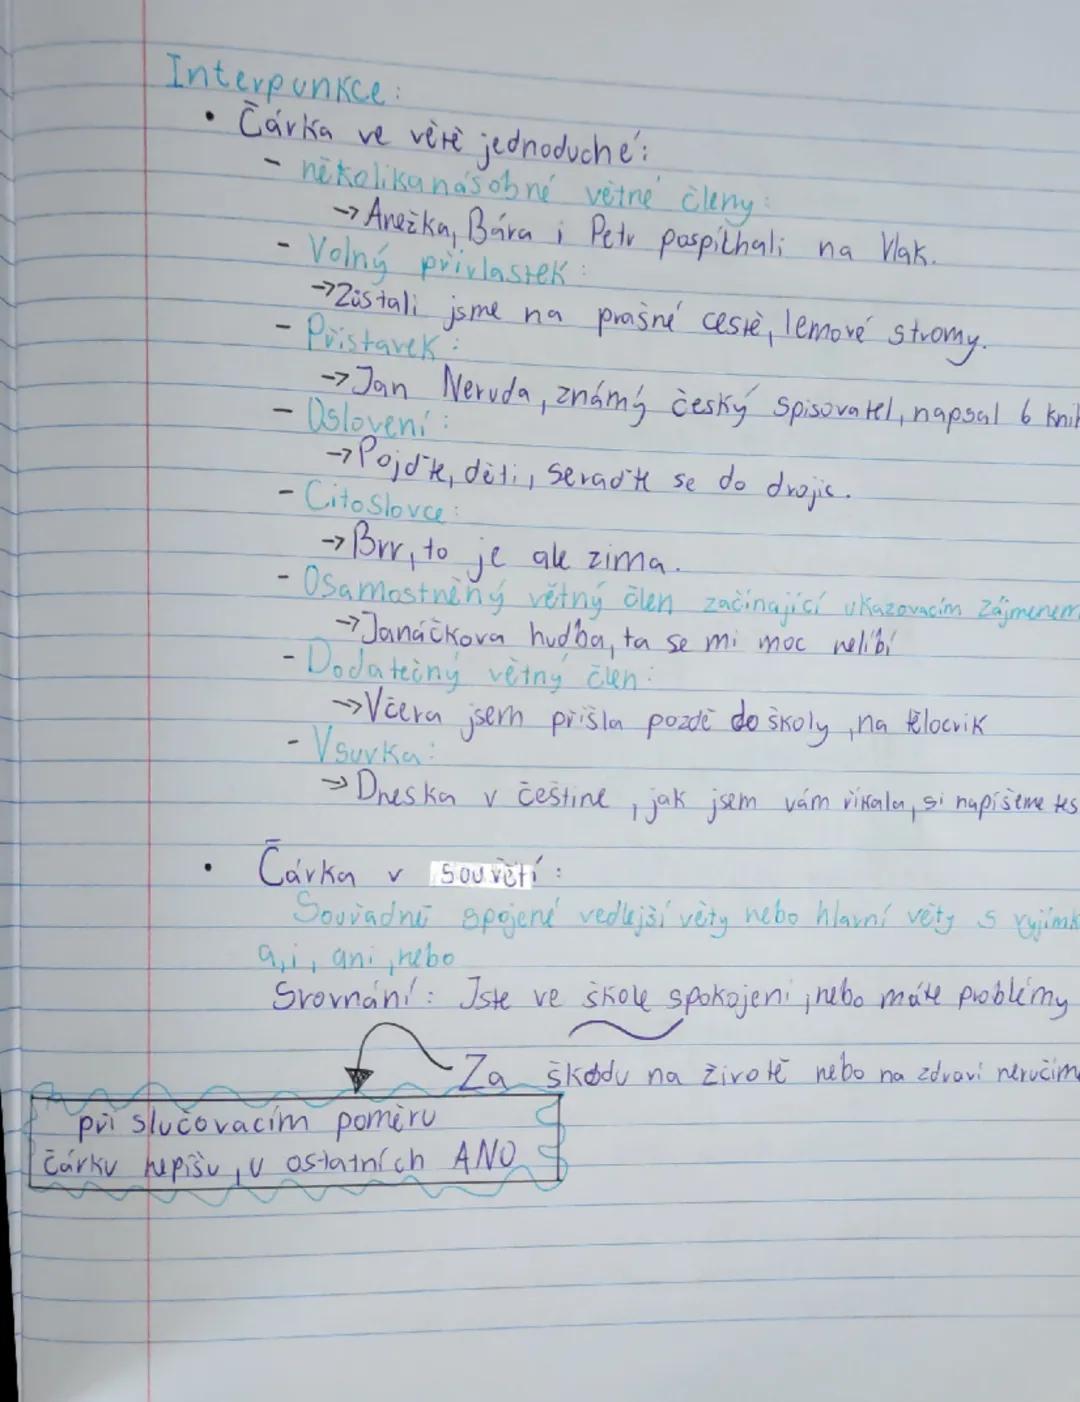 Interpunkce:
• Čárka ve větě jednoduché:
- několikanásobné větné členy:
→ Anežka, Bára i Petr pospíchali na Vlak.
- Volný přívlastek:
→ Zůstali jsme na prašné cestě, lemové stromy.
- Přístavek:
→ Jan Neruda, známý český spisovatel, napsal 6 knih
- Oslovení:
→ Pojďte, děti, seraďte se do drojic.
- Citoslovce:
→ Brr, to je ale zima.
- Osamostněný větný člen začínající ukazovacím zájmenem
→ Janáčkova hudba, ta se mi moc nelíbí
- Dodatečný větný člen:
→ Včera jsem přišla pozdě do školy, na tělocvik
- Vsuvka:
→ Dneska v češtině, jak jsem vám říkala, si napíšeme tes
• Čárka v souvětí:
Souřadně spojené vedlejší věty nebo hlavní věty s vyjímk
a, i, ani, nebo
Srovnání: Jste ve škole spokojeni, nebo máte problémy
Za škodu na životě nebo na zdraví neručíme
při slučovacím poměru
čárku nepíšu, u ostatních ANO